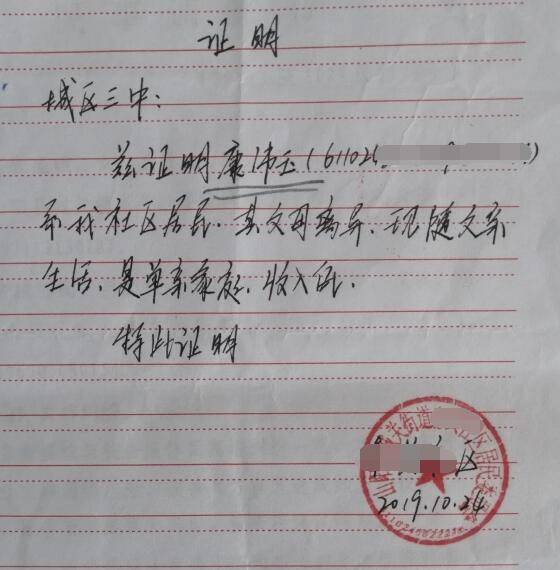 证明
城区三中：
兹证明康伟玉(61102
系我社区居民、其父母离异、现随父亲
生活、是单亲家庭、收入低．
特此证明
关街道 区居民委
区
2019.10.24